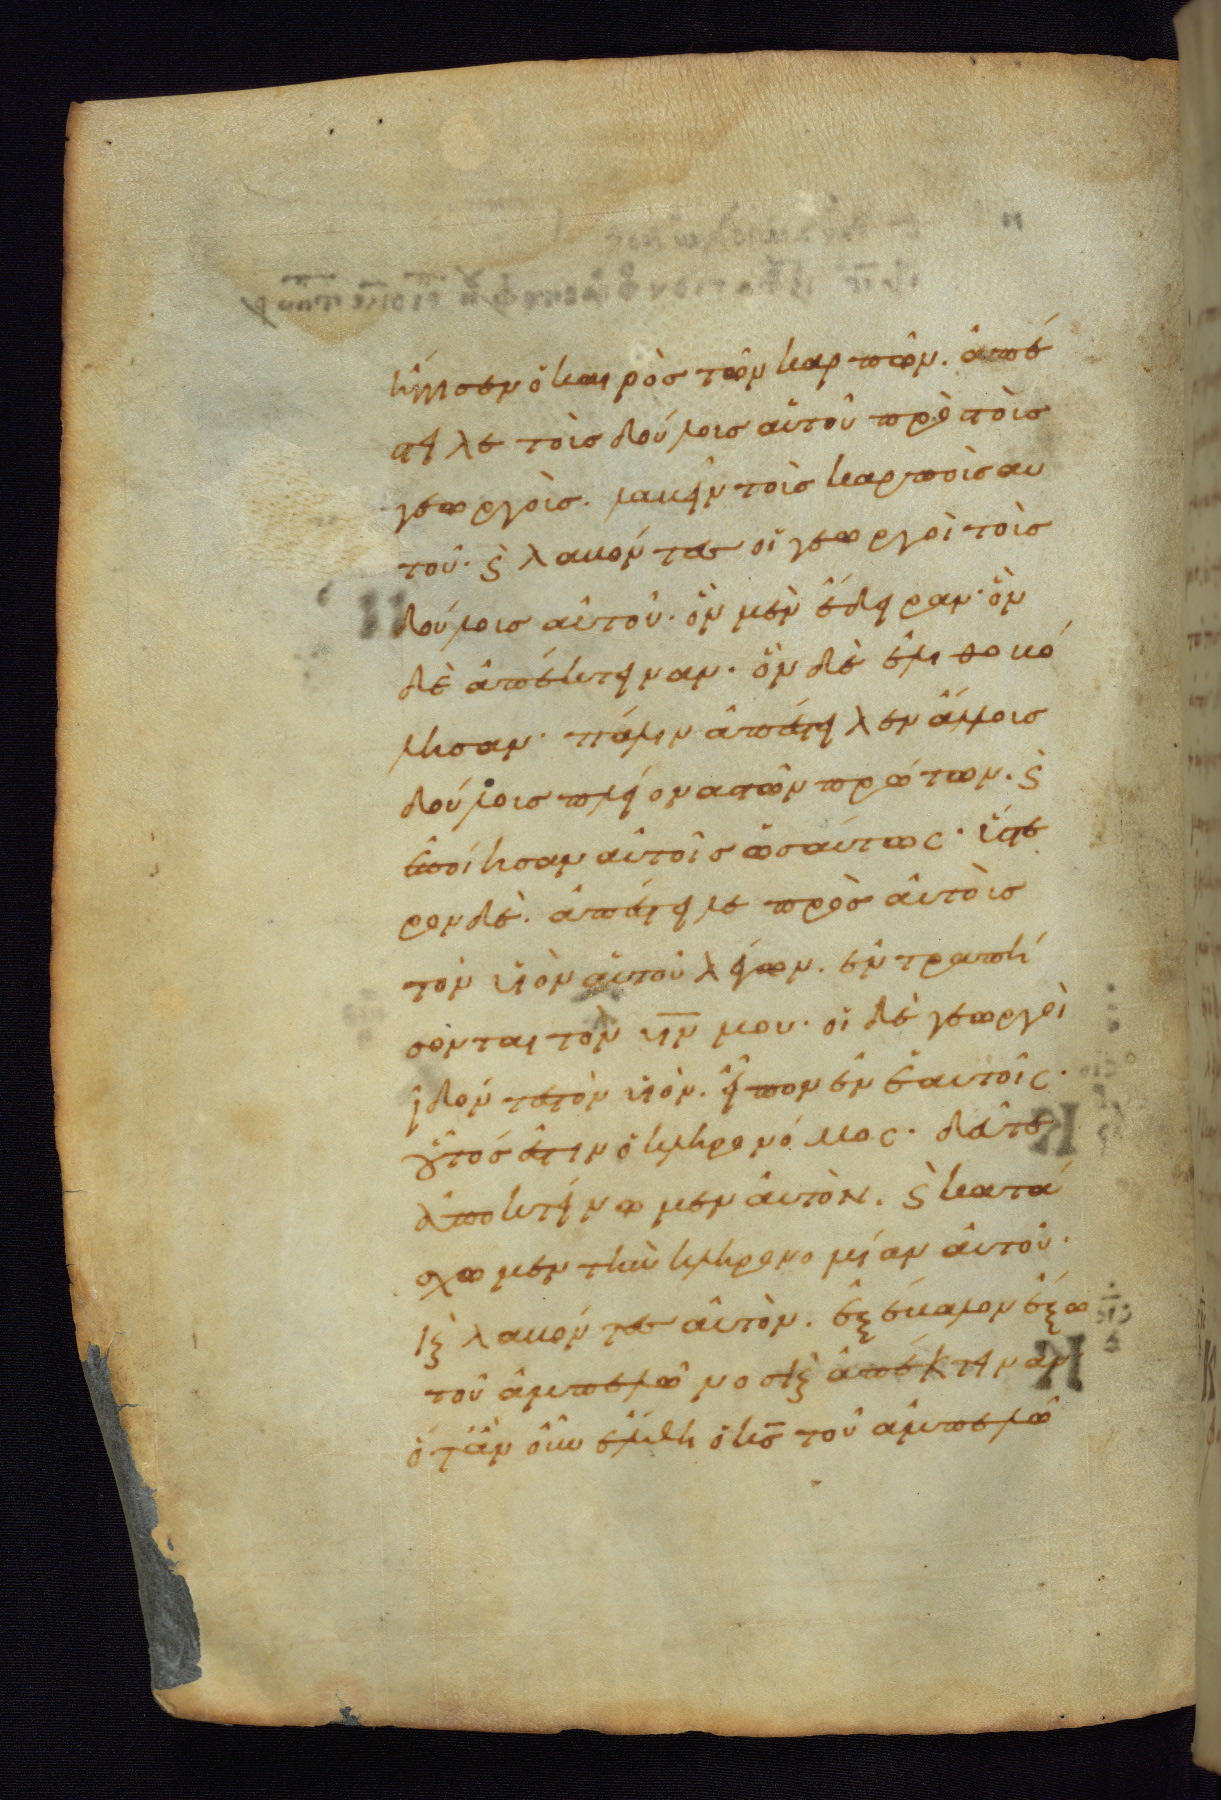 ἤγγισεν ὁ καιρὸς τῶν καρπῶν. ἀπέ
στειλε τοὺς δούλους αὐτοῦ πρὸς τοὺς
γεωργοὺς. λαβεῖν τοὺς καρποὺς αυ
τοῦ. ϛ λαβόντες οἱ γεωργοὶ τοὺς
δούλους αὐτοῦ. ὃν μὲν ἔδειραν. ὃν
δὲ ἀπέκτειναν. ὃν δὲ ἐλιθοβό
λησαν. πάλιν ἀπέστειλεν ἄλλους
δούλους πλείονας τῶν πρώτων. ϛ
ἐποίησαν αὐτοῖς ὡσαύτως. ὕστε
ρον δὲ. ἀπέστειλε πρὸς αὐτοὺς
τὸν υἱὸν αὐτοῦ λέγων. ἐντραπή
σονται τὸν υἱν μου. οἱ δὲ γεωργοὶ
ἰδόντες τὸν υἱόν. εἶπον ἐν ἑαυτοῖς.
οὗτός ἐστιν ὁ κληρονόμος. δεῦτε
ἀποκτείνωμεν αὐτὸν. ϛ κατά
σχωμεν τὴν κληρονομίαν αὐτοῦ.
κ λαβόντες αὐτὸν. ἐξέβαλον ἔξω
τοῦ ἀμπελῶνος κ ἀπέκτειναν.
ὅταν οὖν ἔλθη ὁ κς τοῦ ἀμπελῶ